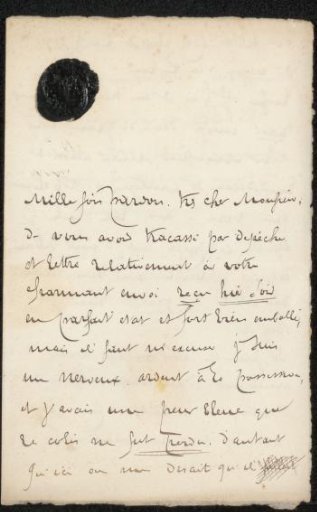 Mille fois pardon, très cher Monsieur,
de vous avoir tracassé par depêche
et lettre relativement à votre
charmant envoi reçu hier soir
en parfait etat et fort bien emballé,
mais il faut m'excuser je suis
un nerveux ardent à la possession,
et j'avais une peur bleue que
le colis ne fut perdu. d'autant
qu'ici on me disait qu'il